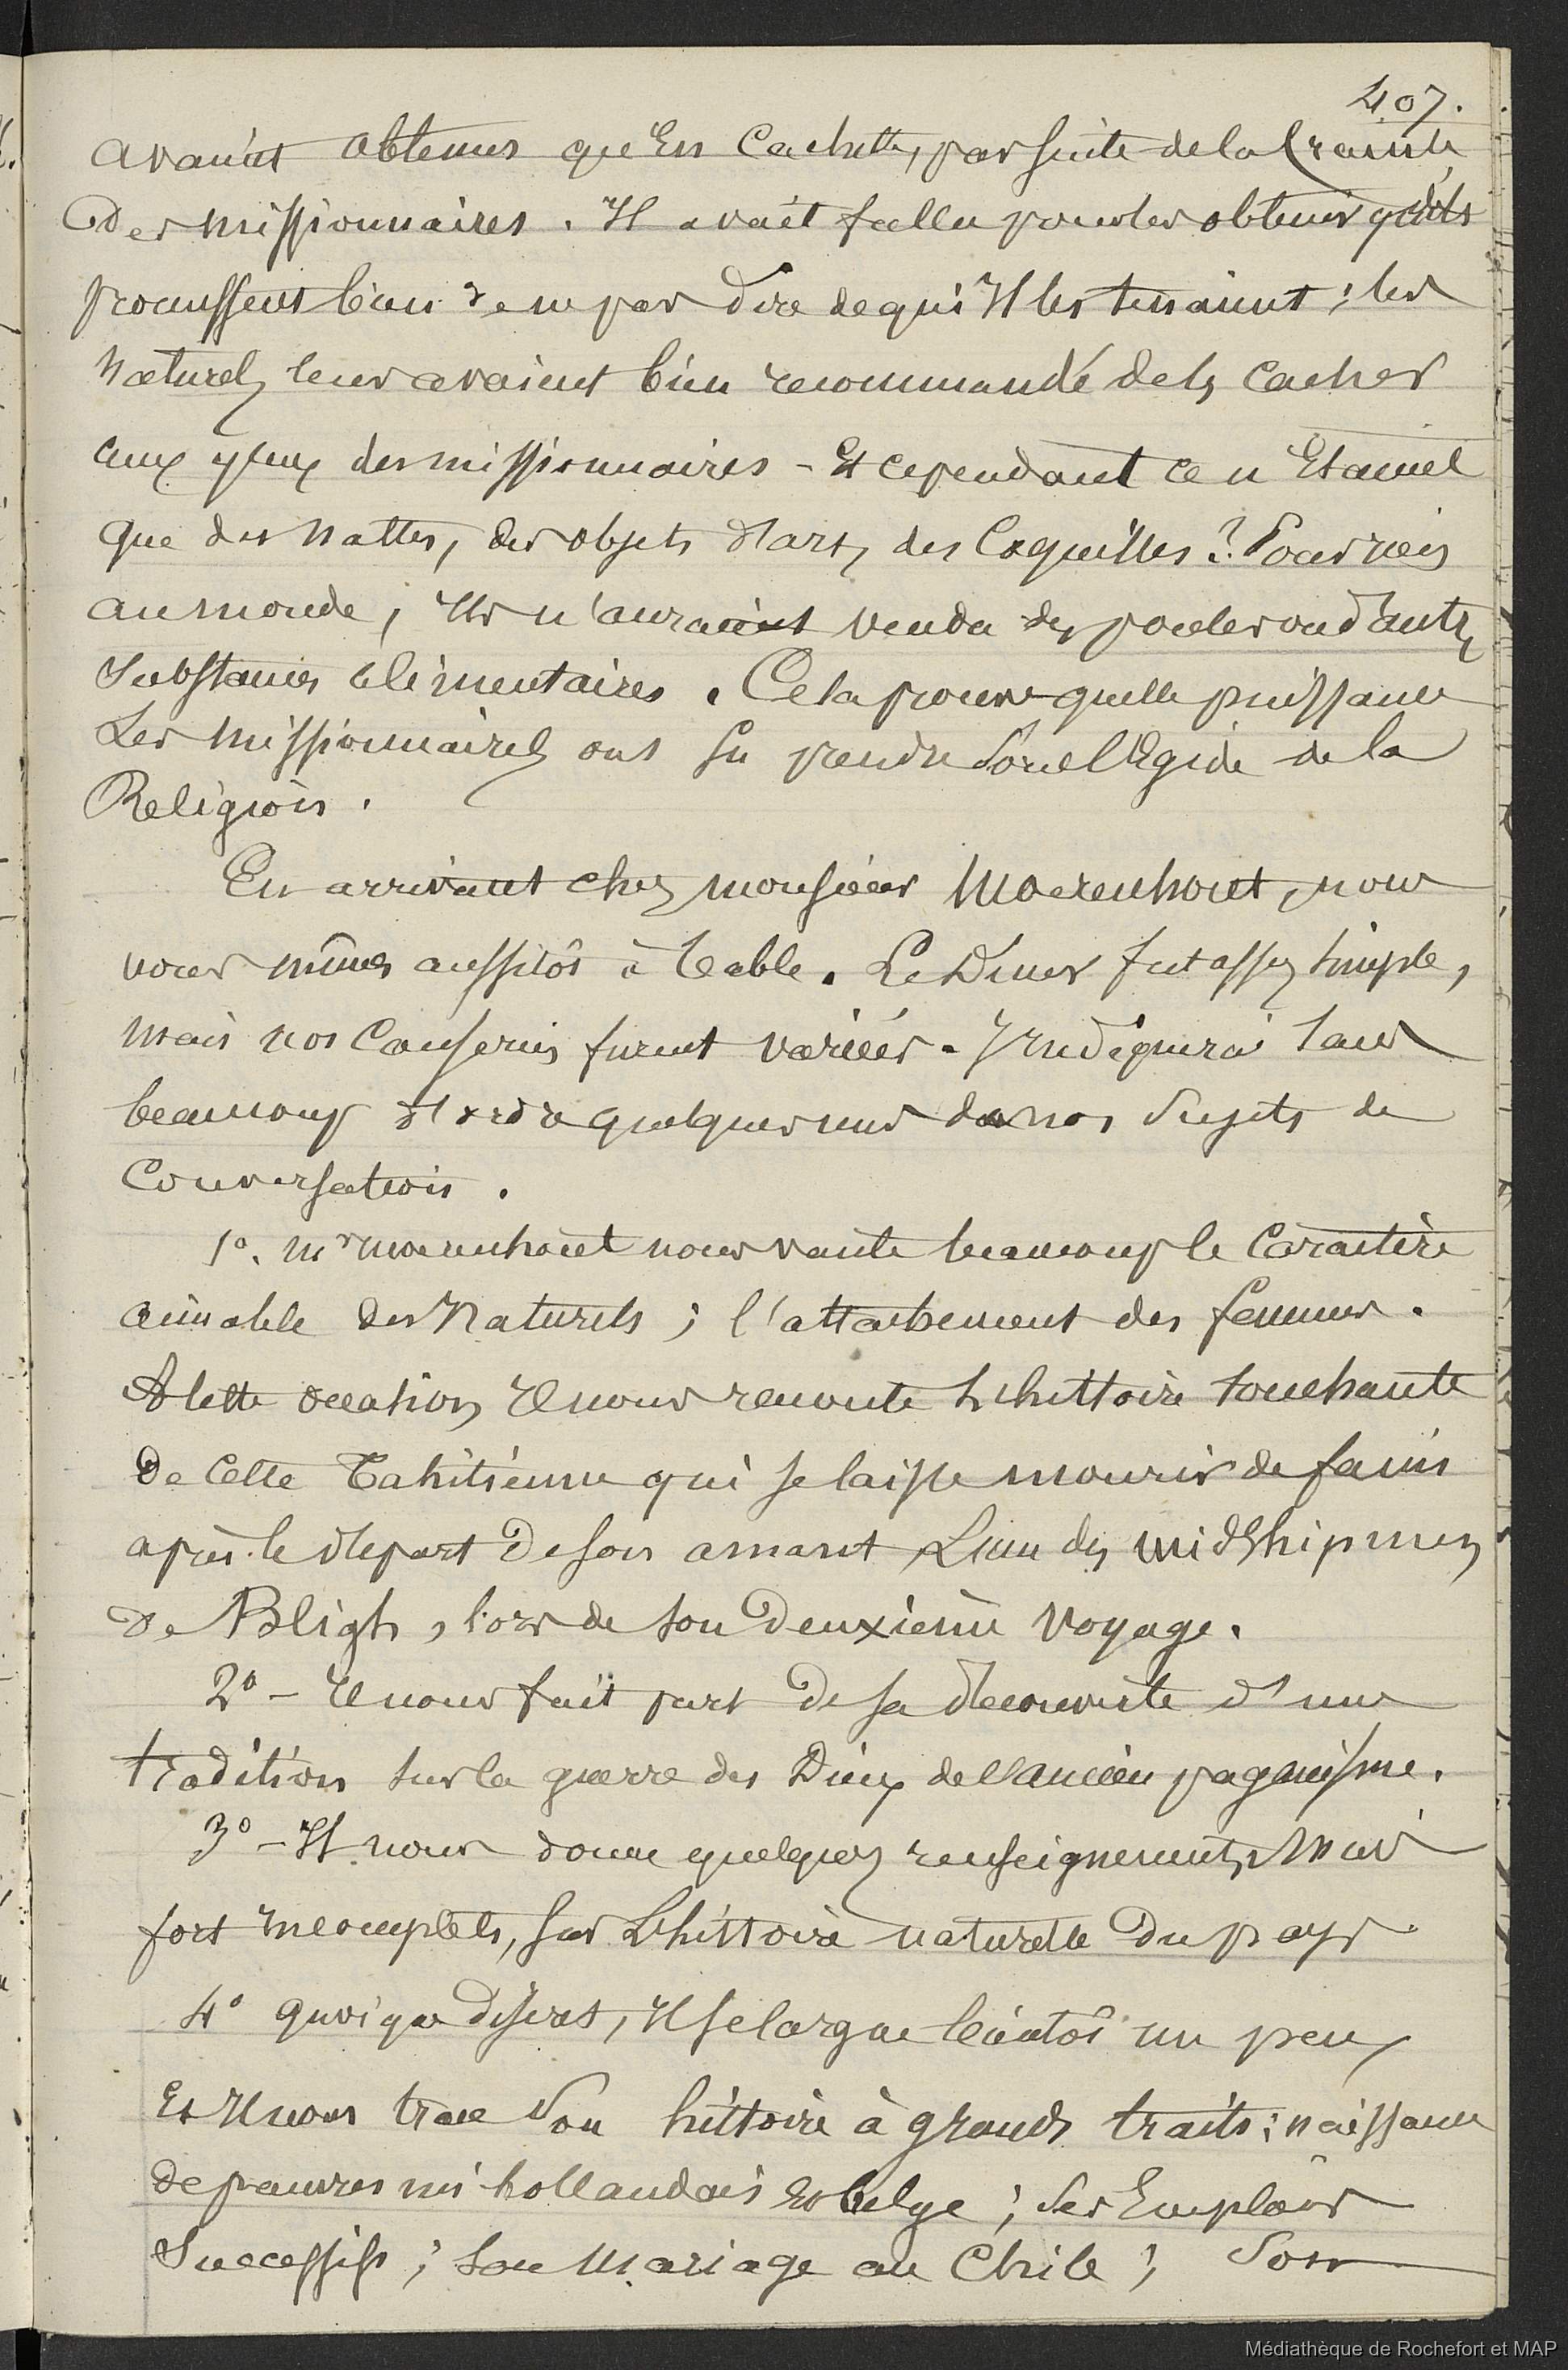 407.
avaient obtenus qu'En Cachette, par suite de la Crainte
des missionnaires. Il avait fallu pour les obtenir qu'ils
promissent bien de ne pas dire de qui Il les tenaient ; les
naturels leur avaient bien recommandé de les Cacher
aux yeux des missionnaires - Et cependant ce n'Etaient
que des nattes, des objets d'art, des Coquilles ? Pour rien
au monde, Ils n'auraient vendu des poules ou d'autres
substances alimentaires. Cela prouve quelle puissance
Les missionnaires ont su prendre sous l'Egide de la
Religion.
En arrivant chez monsieur Moerenhout, nous
nous mîmes aussitôt à table. Le Diner fut assez simple,
mais nos Causeries furent variées. J'Indiquerai sans
beaucoup d'ordre quelques uns de nos sujets de
Conversation.
1o. Mr Moerenhout nous vante beaucoup le Caractère
aimable des Naturels ; l'attachement des femmes.
A cette occasion, Il nous raconte l'histoire touchante
de Cette Tahitienne qui se laisse mourir de faim
après le départ de son amant, L'un des midshipmen
de Bligh, lors de son Deuxième Voyage.
2o - Il nous fait part de sa découverte d'une
tradition sur la guerre des Dieux de l'ancien paganisme.
3o - Il nous donne quelques renseignements, Mais
fort Incomplets, sur L'histoire naturelle du pays
4o quoique discret, Il se largue bientôt un peu,
Et Il nous trace son histoire à grands traits : naissance
de pauvres mi-hollandais Et belge ; ses Emplois
Successifs ; son Mariage au Chile ; Son
Médiathèque de Rochefort et MAP